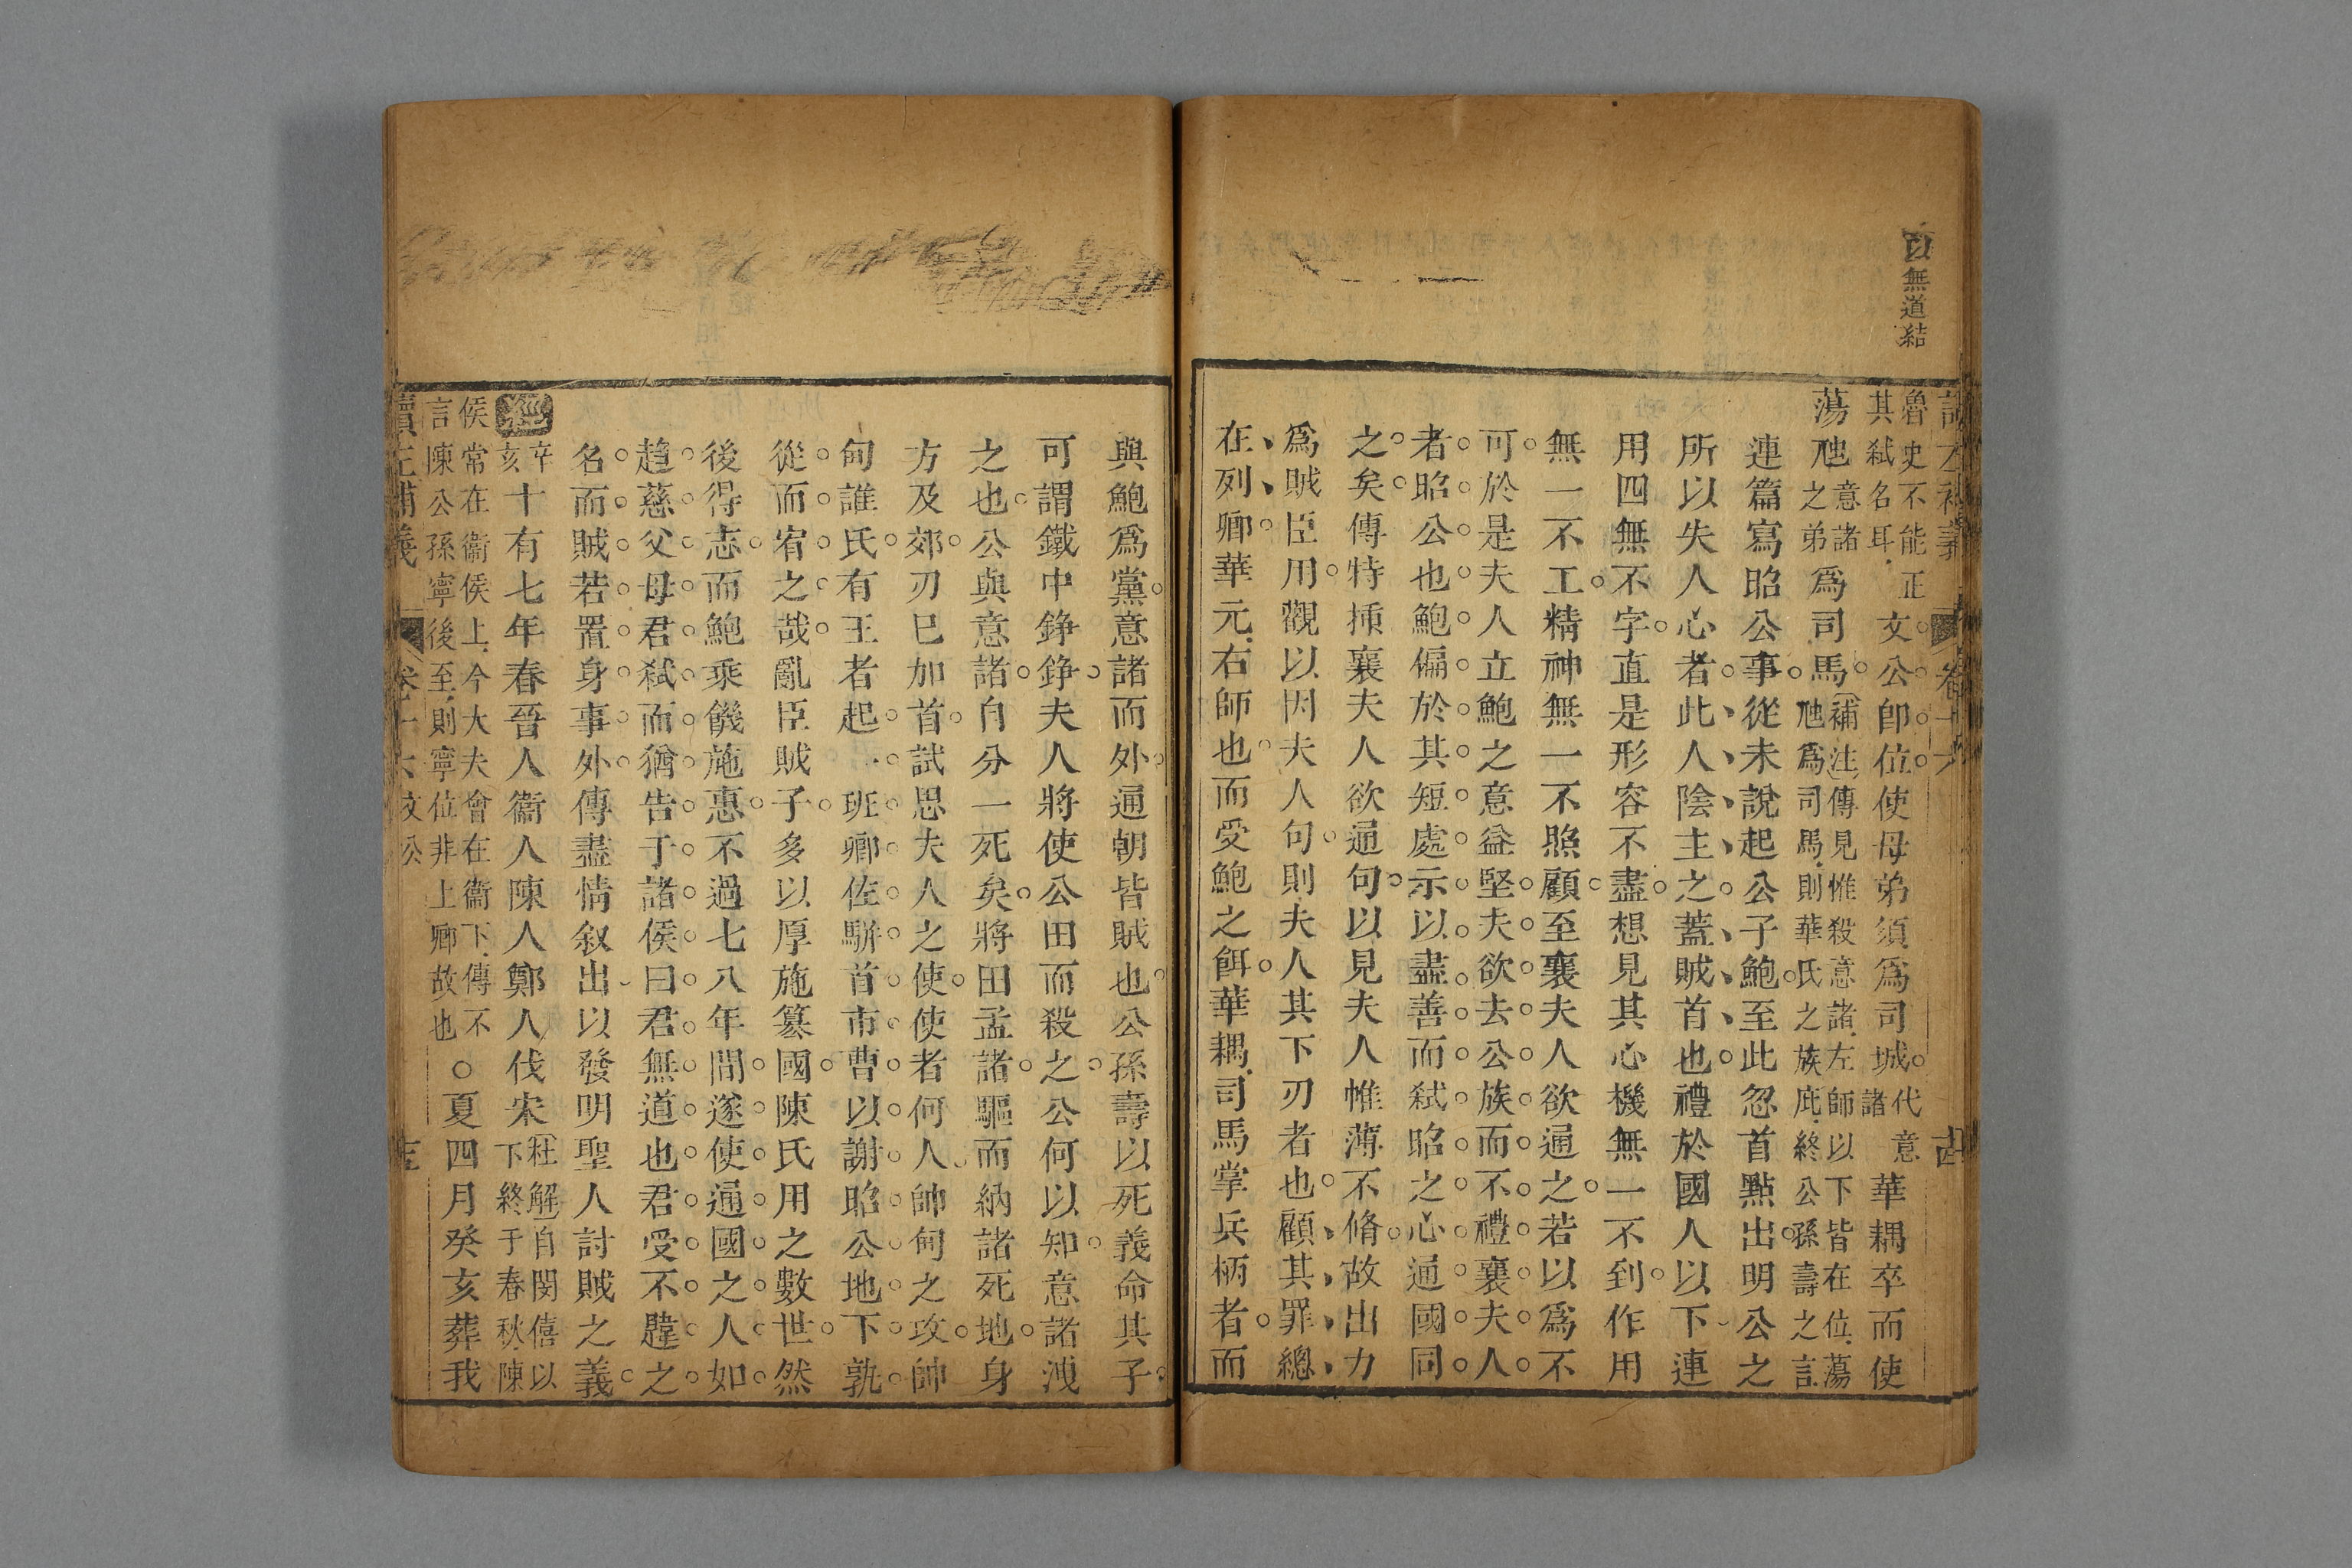 以無道結
讀左補義 卷十六 古
魯史不能正
其弑名耳
文公卽位使母弟須爲司城
代意
諸
華耦卒而使
蕩虺
意諸
之弟
爲司馬
補注傳見惟殺意諸左師以下皆在位蕩
虺爲司馬則華氏之族庇終公孫壽之言
連篇寫昭公事從未說起公子鮑至此忽首點出明公之
所以失人心者此人陰主之蓋賊首也禮於國人以下連
用四無不字直是形容不盡想見其心機無一不到作用
無一不工精神無一不照顧至襄夫人欲通之若以爲不
可於是夫人立鮑之意益堅夫欲去公族而不禮襄夫人
者昭公也鮑偏於其短處示以盡善而弑昭之心通國同
之矣傳特揷襄夫人欲通句以見夫人帷薄不脩故出力
爲賊臣用觀以因夫人句則夫人其下刃者也顧其罪總
在列卿華元右師也而受鮑之餌華耦司馬掌兵柄者而
與鮑爲黨意諸而外通朝皆賊也公孫壽以死義命其子
可謂鐵中錚錚夫人將使公田而殺之公何以知意諸洩
之也公與意諸自分一死矣將田孟諸驅而納諸死地身
方及郊刃巳加首試思夫人之使使者何人帥甸之攻帥
甸誰氏有王者起一班卿佐駢首市曹以謝昭公地下孰
從而宥之哉亂臣賊子多以厚施簒國陳氏用之數世然
後得志而鮑乘饑施惠不過七八年間遂使通國之人如
趨慈父母君弑而猶告于諸侯曰君無道也君受不韙之
名而賊若置身事外傳盡情叙出以發明聖人討賊之義
經
辛
亥
十有七年春晉人衞人陳人鄭人伐宋
杜解自閔僖以
下終于春秋陳
侯常在衞侯上今大夫會在衞下傳不
言陳公孫寧後至則寧位非上卿故也
○夏四月癸亥葬我
讀左補義 卷十六 文公